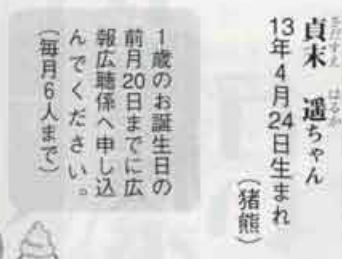 さだすえ はるか
貞末 遥ちゃん
13年4月24日生まれ
(猪熊)
1歳のお誕生日の
前月20日までに広
報広聴係へ申し込
んでください。
(毎月6人まで)